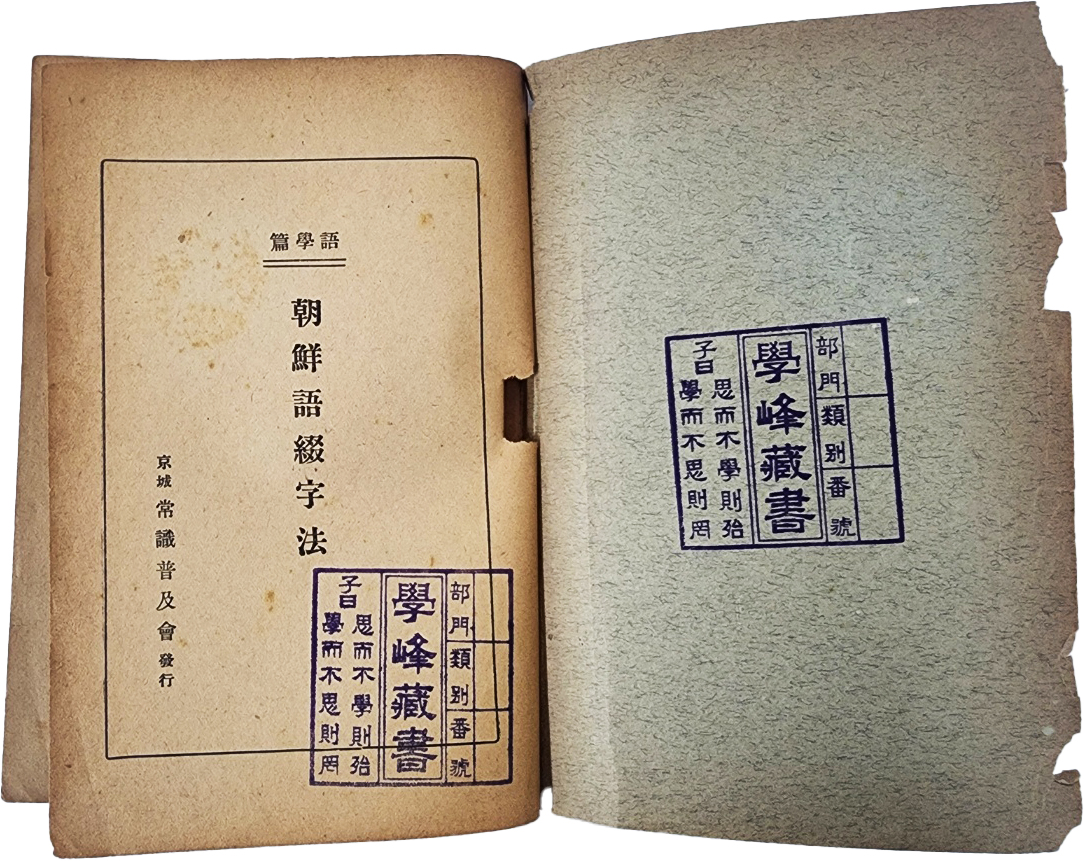 語學篇
朝鮮語綴字法
京城 常識普及會 發行
部門
類別
番號
學峰藏書
子曰
學而不思則罔
思而不學則殆
部門
類別
番號
學峰藏書
子曰
學而不思則罔
思而不學則殆